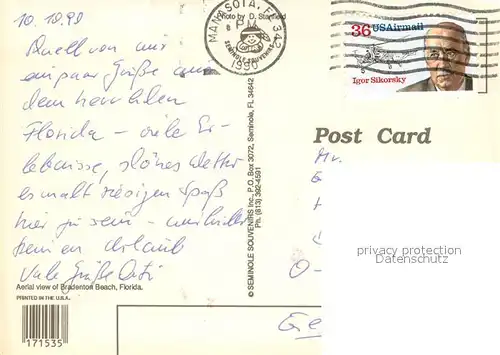 10.10.90
Auch von mir
ein paar Grüße aus
dem herrlichen
Florida – viele Er-
lebnisse, schönes Wetter
es macht riesigen Spaß
hier zu sein –
Urlaub
Viele Grüße
Aerial view of Bradenton Beach, Florida.
PRINTED IN THE U.S.A.
171535
Photo by D. Stanfield
MANASOTA, FL 342
PM
1990
© SEMINOLE SOUVENIRS Inc., P.O. Box 3072, Seminole, FL 34642
Ph. (813) 392-4591
36 USAirmail
Igor Sikorsky
Post Card
Mr.
privacy protection
Datenschutz